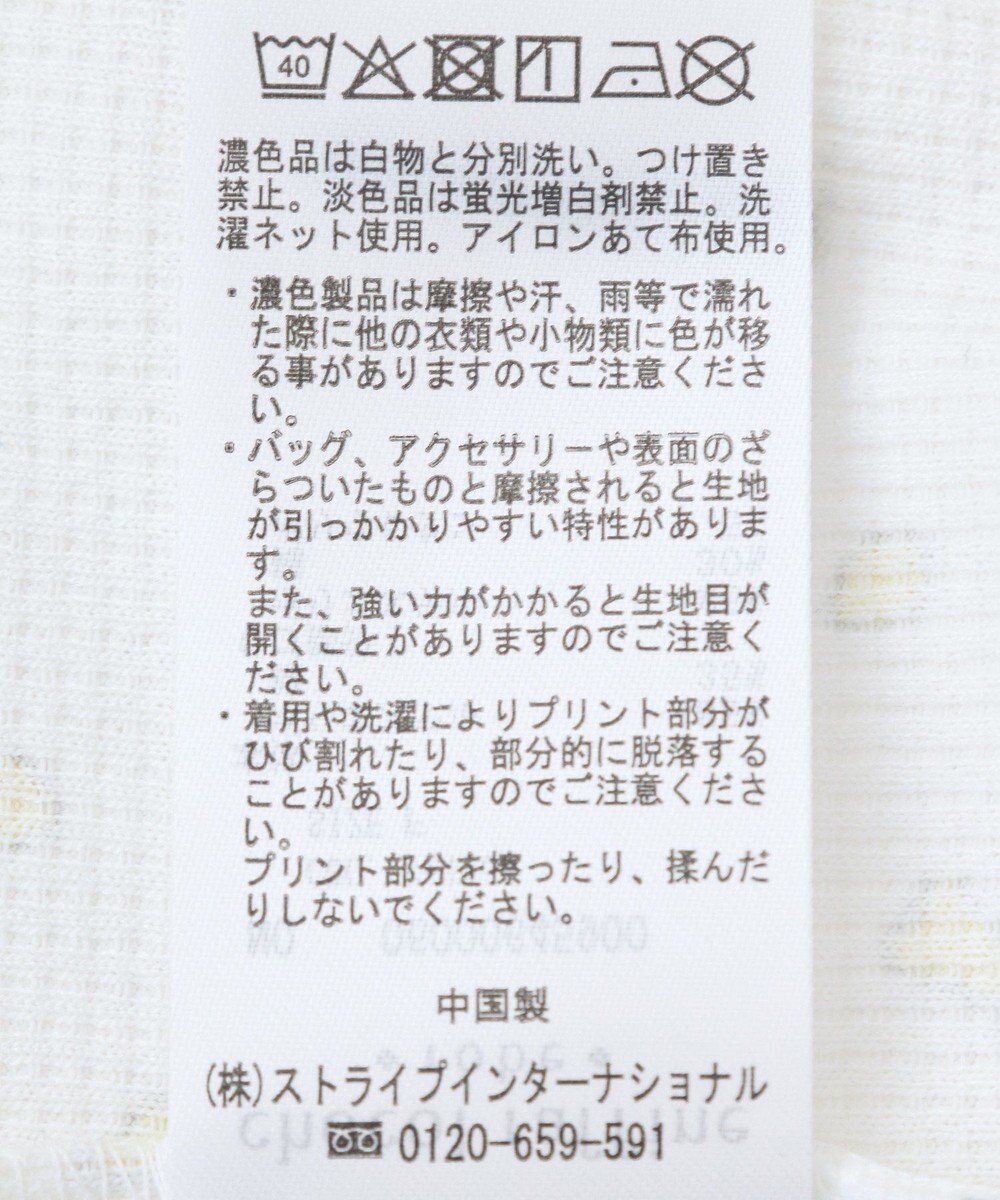 40
濃色品は白物と分別洗い。つけ置き
禁止。淡色品は蛍光増白剤禁止。洗
濯ネット使用。アイロンあて布使用。
・濃色製品は摩擦や汗、雨等で濡れ
た際に他の衣類や小物類に色が移
る事がありますのでご注意くださ
い。
・バッグ、アクセサリーや表面のざ
らついたものと摩擦されると生地
が引っかかりやすい特性がありま
す。
また、強い力がかかると生地目が
開くことがありますのでご注意く
ださい。
・着用や洗濯によりプリント部分が
ひび割れたり、部分的に脱落する
ことがありますのでご注意くださ
い。
プリント部分を擦ったり、揉んだ
りしないでください。
中国製
(株)ストライプインターナショナル
0120-659-591